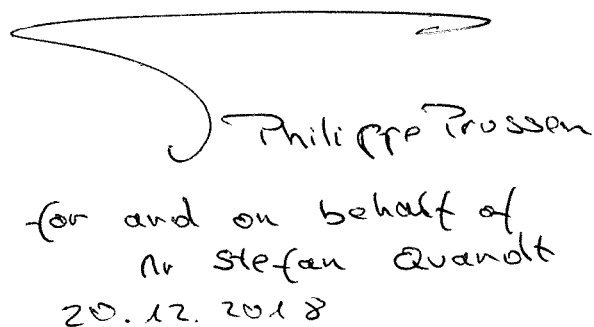 Philippe Prussen
for and on behalf of
Mr Stefan Quandt
20.12.2018